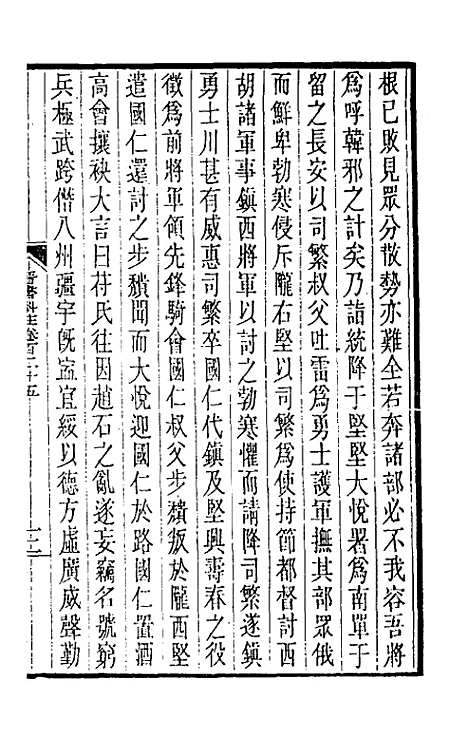 根已敗見眾分散勢亦難全若奔諸部必不我容吾將
為呼韓邪之計矣乃詣統降于堅堅大悅署為南單于
留之長安以司繁叔父吐雷為勇士護軍撫其部眾俄
而鮮卑勃寒侵斥隴右堅以司繁為使持節都督討西
胡諸軍事鎮西將軍以討之勃寒懼而請降司繁遂鎮
勇士川甚有威惠司繁卒國仁代鎮及堅興壽春之役
徵為前將軍領先鋒騎會國仁叔父步穨叛於隴西堅
遣國仁還討之步穨聞而大悅迎國仁於路國仁置酒
高會攘袂大言曰苻氏往因趙石之亂遂妄竊名號窮
兵極武跨僭八州疆宇既寍宜綏以德方虛廣威聲勤
晉書斠注卷百二十五
二